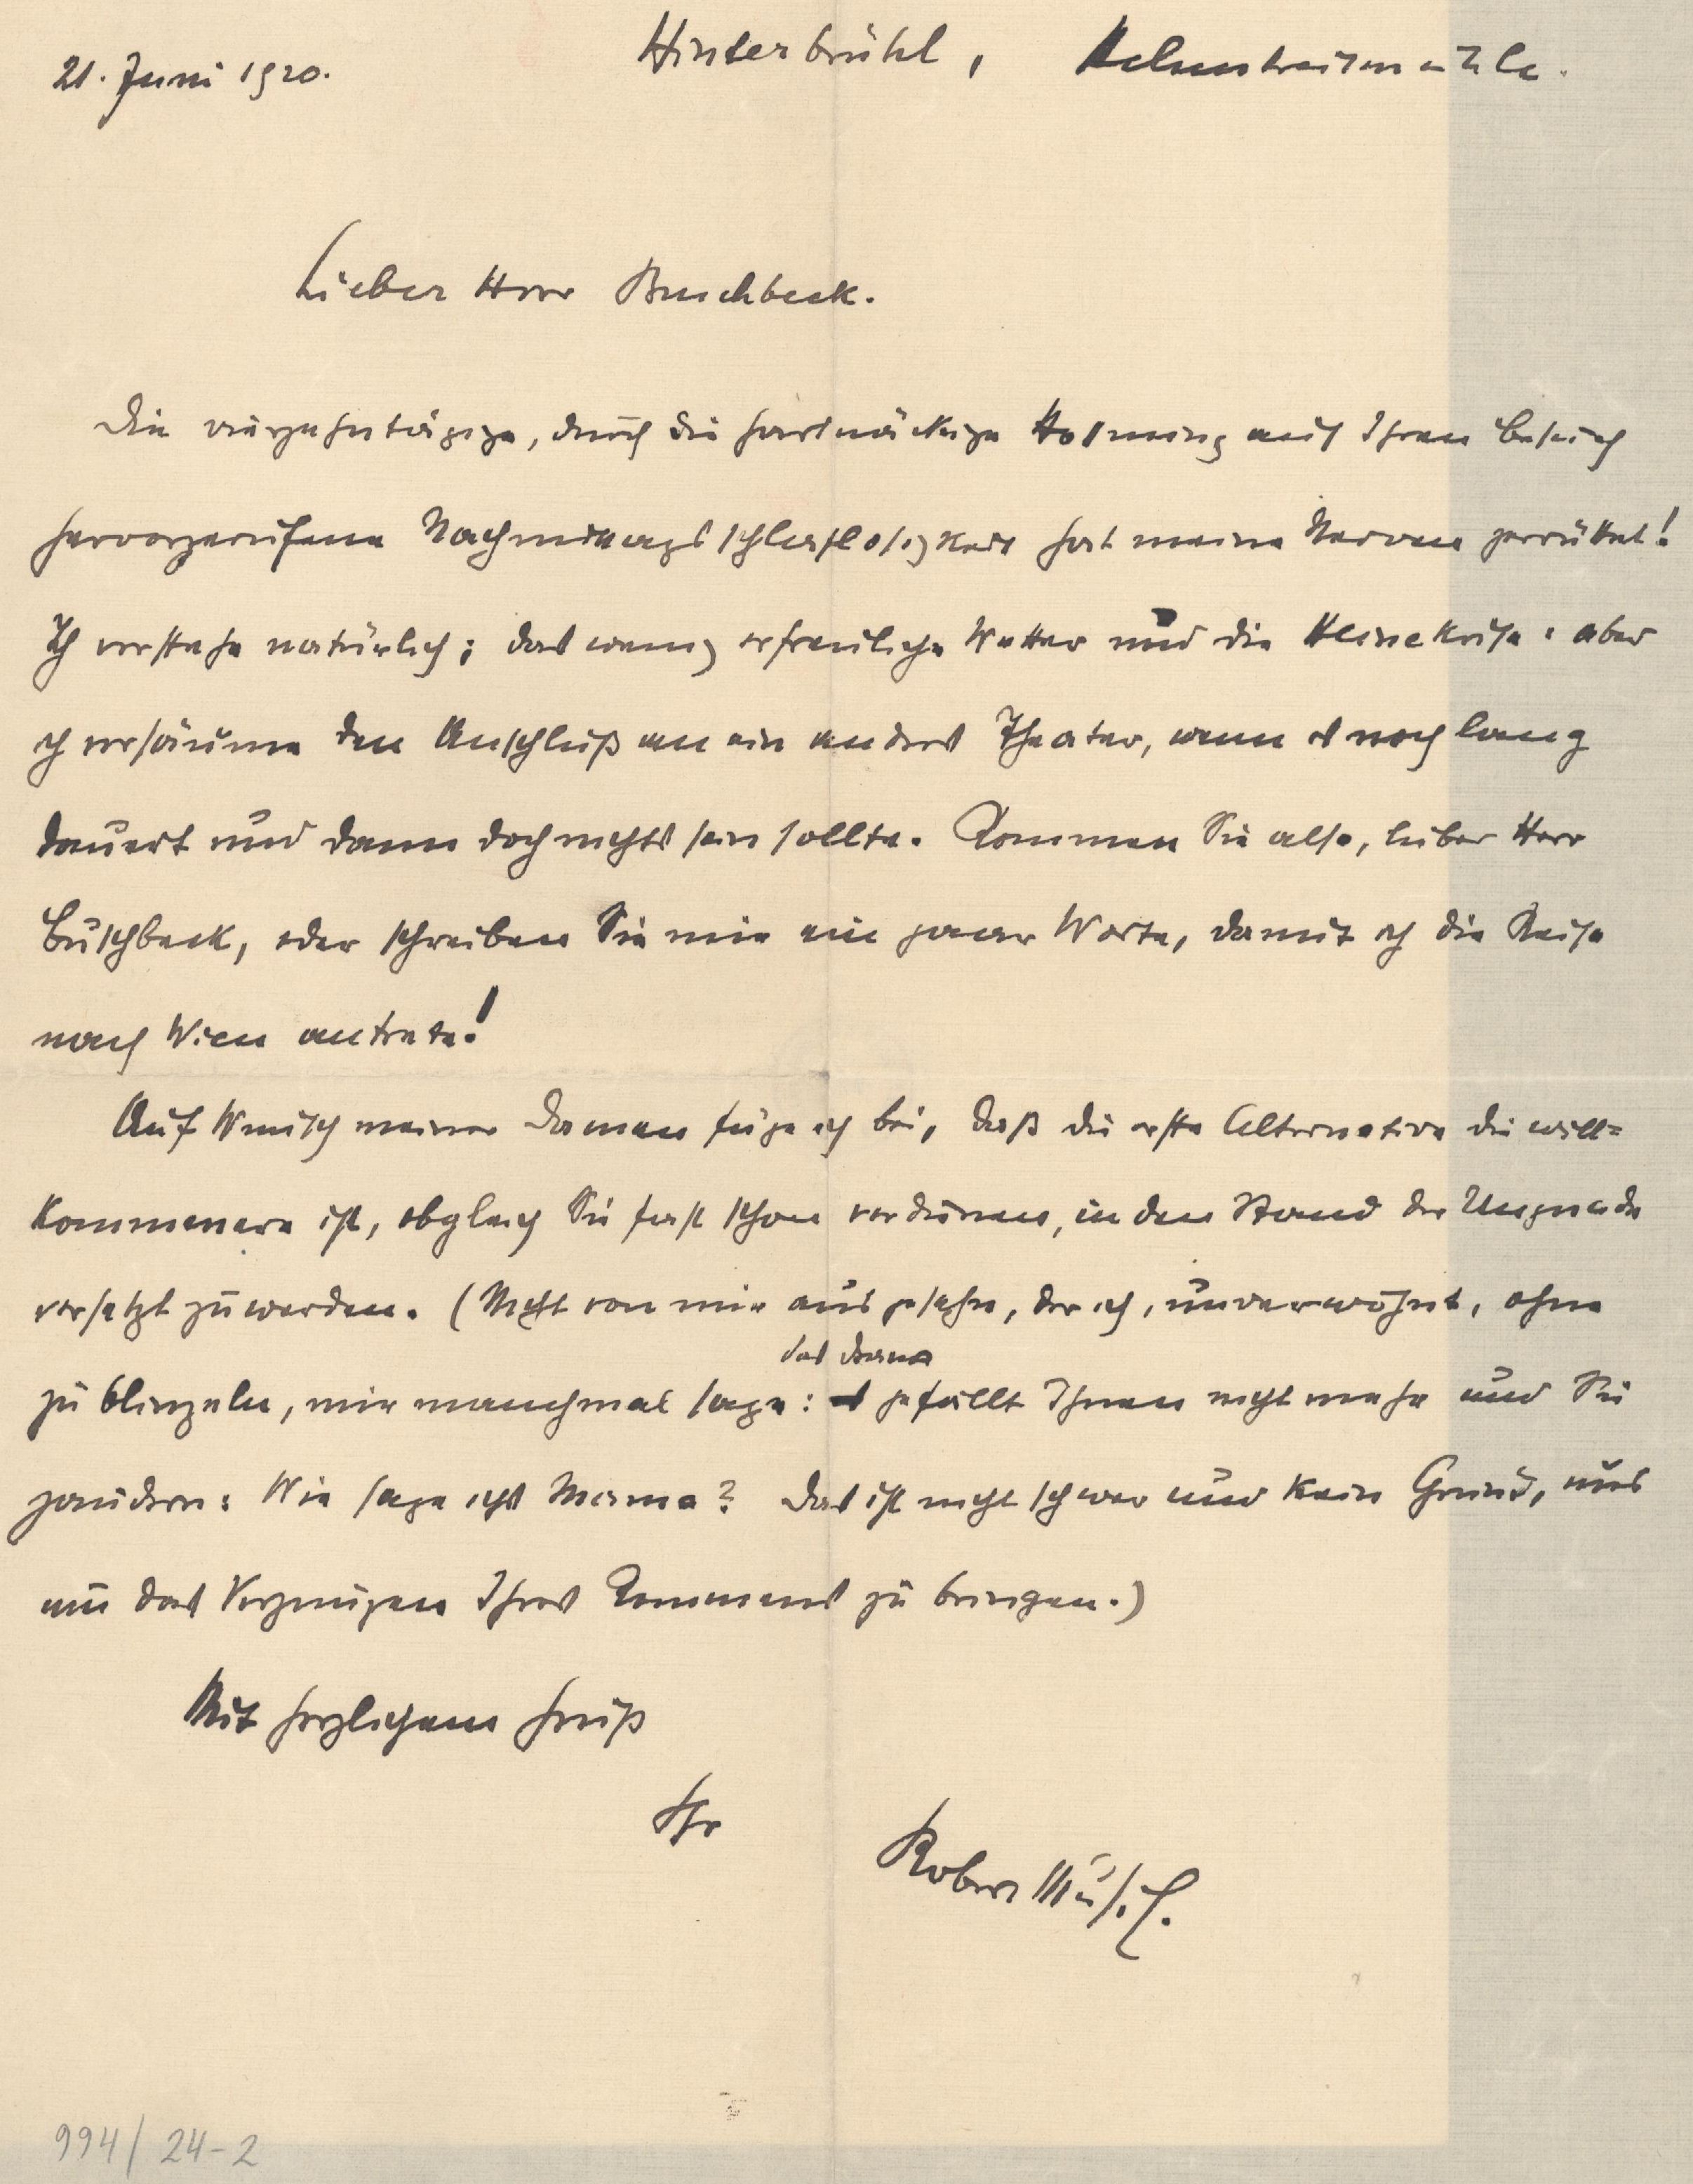 21. Juni 1920.
Hinterbrühl,
Lieber Herr Buschbeck.
Die vierzehntägige, durch die hartnäckige Hoffnung auf Ihren Besuch
hervorgerufene Nachmittagsschlaflosigkeit hat meine Nerven zerrüttet!
Ich verstehe natürlich; das wenig erfreuliche Wetter und die kleine Krise: aber
ich versäume den Anschluß an ein andres Theater, wenn es noch lang
dauert und dann doch nichts sein sollte. Kommen Sie also, lieber Herr
Buschbeck, oder schreiben Sie mir ein paar Worte, damit ich die Reise
nach Wien antrete!
Auf Wunsch meiner Damen füge ich bei, daß die erste Alternative die will-
kommenere ist, obgleich Sie fast schon verdienen, in den Stand der Ungnade
versetzt zu werden. (Nicht von mir aus gesehn, der ich, unverwöhnt, ohne
das Drama
zu blinzeln, mir manchmal sage: es gefällt Ihnen nicht mehr und Sie
zaudern: Wie sage ichs Mama? Das ist nicht schwer und kein Grund, uns
um das Vergnügen Ihres Kommens zu bringen.)
Mit herzlichem Gruß
Ihr
Robert Musil.
994/24-2